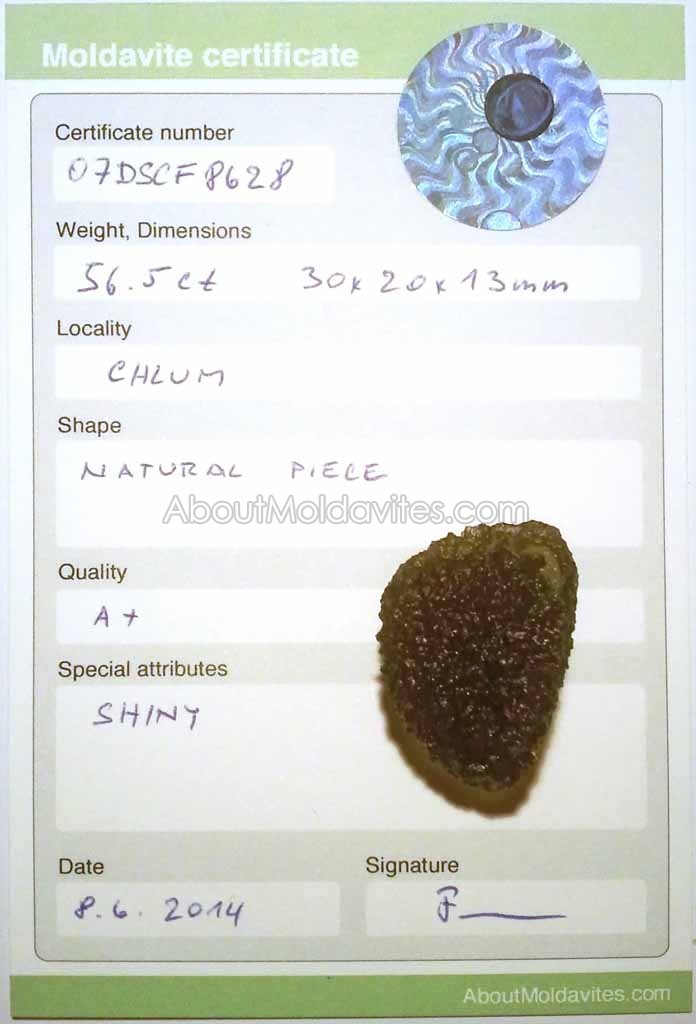 Moldavite certificate
Certificate number
07DSCF8628
Weight, Dimensions
56.5ct 30x20x13mm
Locality
CHLUM
Shape
NATURAL PIECE
AboutMoldavites.com
Quality
A+
Special attributes
SHINY
Date
Signature
8.6. 2014
AboutMoldavites.com